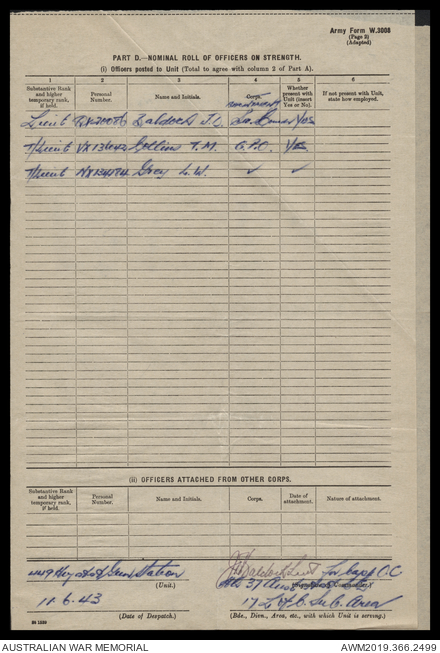 Army Form W.3008
(Page 2)
(Adapted)
PART D.—NOMINAL ROLL OF OFFICERS ON STRENGTH.
(i) Officers posted to Unit (Total to agree with column 2 of Part A).
1 2 3 4 5 6
Substantive Rank and higher temporary rank, if held. Personal Number. Name and Initials. Corps. Whether present with Unit (insert Yes or No). If not present with Unit, state how employed.
Lieut Baldock J.C. Yes
T/Lieut VX13642 Collins T.M. Yes
T/Lieut Grey L.W. ✓ ✓
(ii) OFFICERS ATTACHED FROM OTHER CORPS.
Substantive Rank and higher temporary rank, if held. Personal Number. Name and Initials. Corps. Date of attachment. Nature of attachment.
Station Lieut for Capt O.C
(Unit.)
11.6.43 17 L of C. Sub. Area
(Date of Despatch.) (Bde., Divn., Area, etc., with which Unit is serving.)
AUSTRALIAN WAR MEMORIAL AWM2019.366.2499